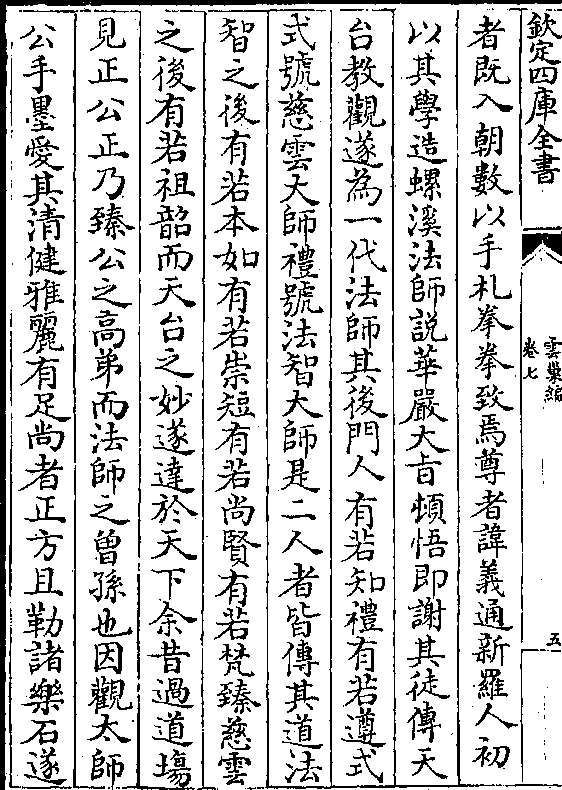 欽定四庫全書
雲巢編
卷七
五
者既入朝數以手札拳拳致焉尊者諱義通新羅人初
以其學造螺溪法師說華嚴大旨頓悟即謝其徒傳天
台教觀遂為一代法師其後門人有若知禮有若遵式
式號慈雲大師禮號法智大師是二人者皆傳其道法
智之後有若本如有若崇矩有若尚賢有若梵臻慈雲
之後有若祖韶而天台之妙遂達於天下余昔過道場
見正公正乃臻公之高弟而法師之曾孫也因觀太師
公手墨愛其清健雅麗有足尚者正方且勒諸樂石遂